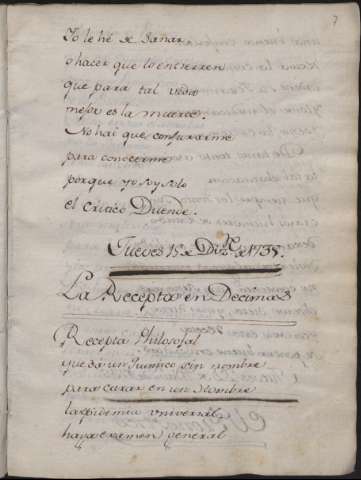 7
Yo le hé de Sanar
o hacer que lo entierren
que para tal vida
mejor es la muerte.
No hai que conjurarme
para conocerme
porque yo soy solo
el Critico Duende.
Jueves 15 de Dizre de 1735.
La Recepta en Decimas
Recepta Philosofal
que dá un Quimico sin nombre
para curar en un Hombre
la epidemia universal
haya examen general